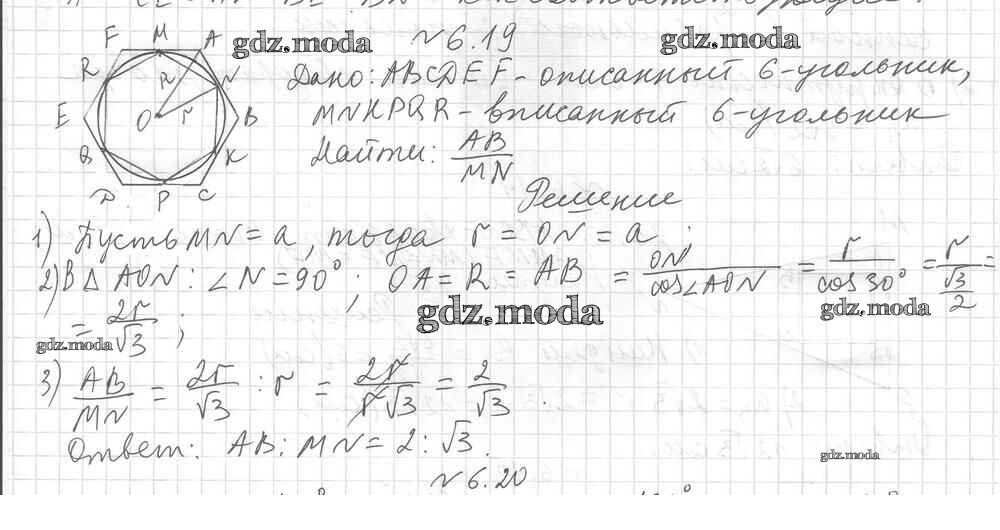 № 6.19
gdz.moda
gdz.moda
F M A
R R N
E O r B
Q K
D P C
Дано: ABCDEF - описанный 6-угольник,
MNKPQR - вписанный 6-угольник
Найти: AB/MN
Решение
1) Пусть MN = a, тогда r = ON = a.
2) В △ AON: ∠N = 90°; OA = R = AB = ON/cos∠AON = r/cos 30° = r/(√3/2) =
= 2r/√3;
gdz.moda
gdz.moda
gdz.moda
3) AB/MN = 2r/√3 : r = 2r/r√3 = 2/√3.
Ответ: AB : MN = 2 : √3.
gdz.moda
№ 6.20